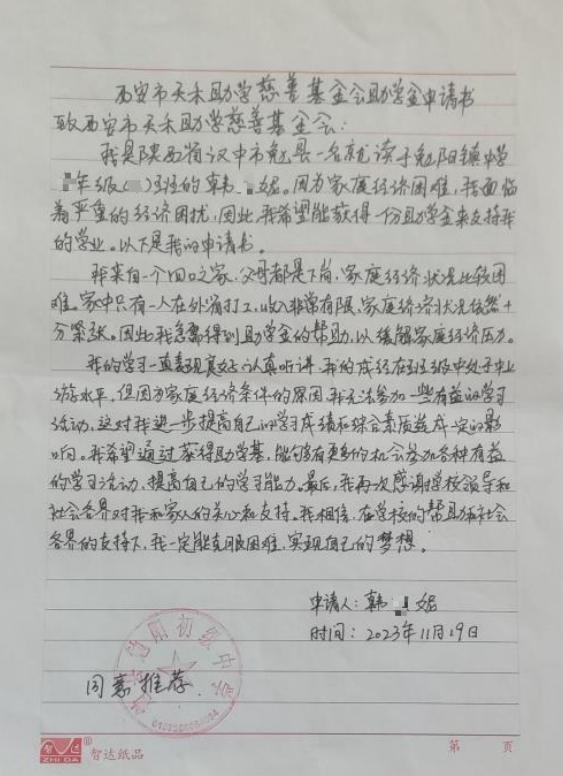 西安市天禾助学慈善基金会助学金申请书
致西安市天禾助学慈善基金会：
我是陕西省汉中市勉县一名就读于勉阳镇中学
年级()班的韩 妮。因为家庭经济困难，我面临
着严重的经济困扰，因此，我希望能获得一份助学金来支持我
的学业。以下是我的申请书。
我来自一个四口之家，父母都是下岗，家庭经济状况比较困
难。家中只有一人在外省打工，收入非常有限，家庭经济状况依然十
分紧张。因此我急需得到助学金的帮助，以缓解家庭经济压力。
我的学习一直表现良好，认真听讲，我的成绩在班级中处于中上
游水平，但因为家庭经济条件的原因，我无法参加一些有益的学习
活动，这对我进一步提高自己的学习成绩和综合素质造成一定的影
响。我希望通过获得助学基，能够有更多的机会参加各种有益
的学习活动，提高自己的学习能力。最后，我再次感谢学校领导和
社会各界对我和家人的关心和支持。我相信，在学校的帮助和社会
各界的支持下，我一定能克服困难，实现自己的梦想。
申请人：韩 妮
时间：2023年11月19日
勉阳初级中学
同意推荐.
智达 ® 智达纸品
ZHI DA
第 页